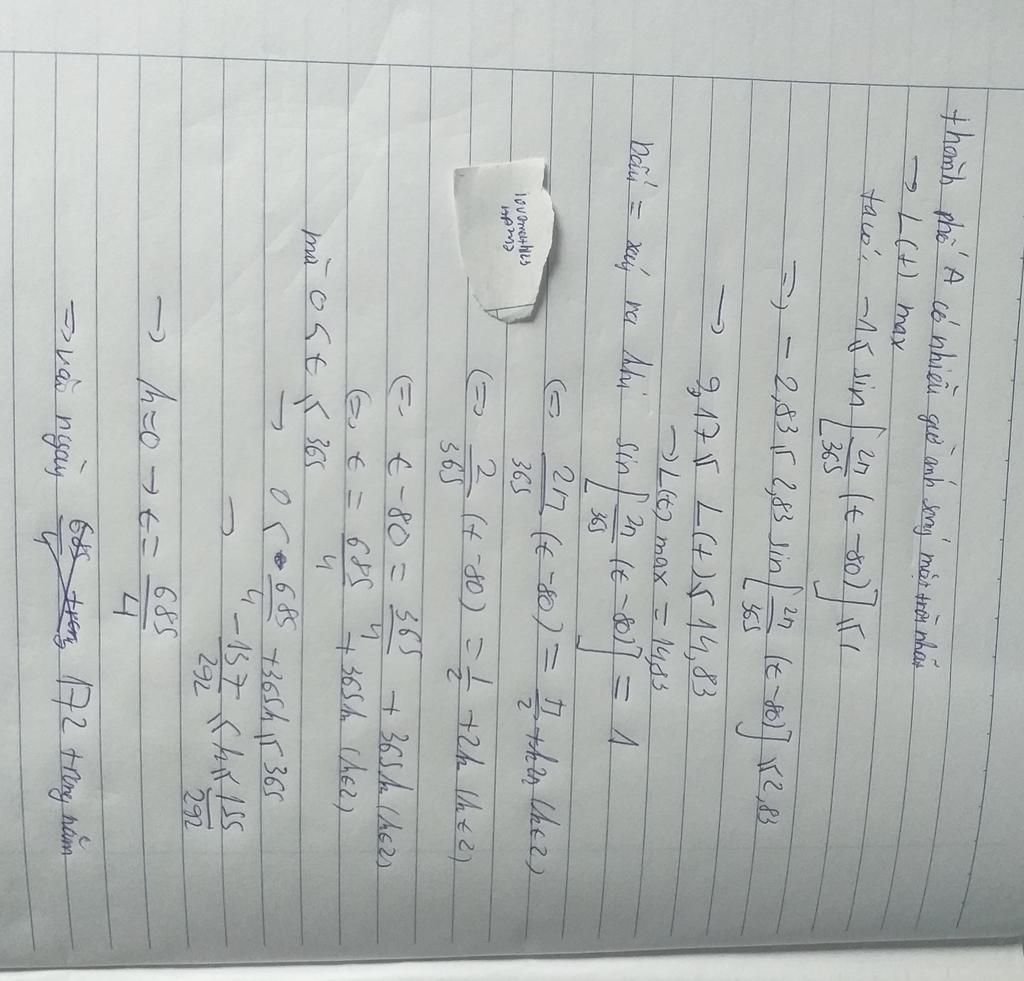 thành phố A có nhiều giờ ánh sáng mặt trời nhất
→ L(t) max
ta có: -1 ≤ sin[2π/365 (t-80)] ≤ 1
=> -2,83 ≤ 2,83 sin[2π/365 (t-80)] ≤ 2,83
→ 9,17 ≤ L(t) ≤ 14,83
→ L(t) max = 14,83
Dấu = xảy ra khi sin[2π/365 (t-80)] = 1
(=) 2π/365 (t-80) = π/2 + k2π (k∈Z)
(=) 2/365 (t-80) = 1/2 + 2k (k∈Z)
(=) t-80 = 365/4 + 365k (k∈Z)
(=) t = 685/4 + 365k (k∈Z)
mà 0 ≤ t ≤ 365
→ 0 ≤ 685/4 + 365k ≤ 365
→ -137/292 ≤ k ≤ 155/292
→ k=0 → t = 685/4
=> vào ngày 172 trong năm